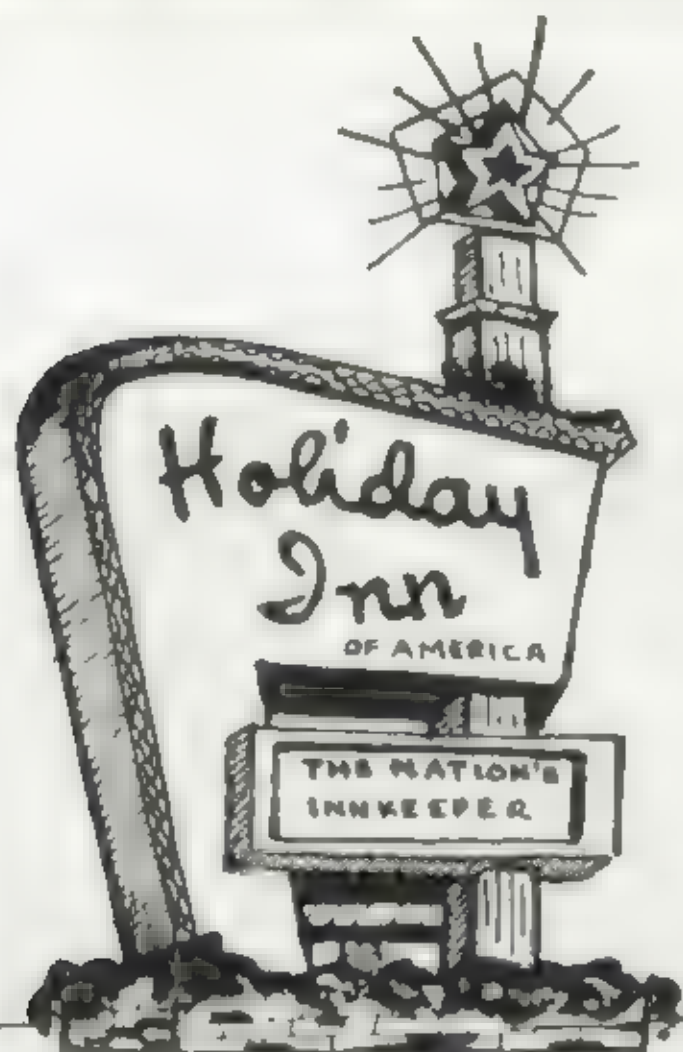 Holiday
Inn
OF AMERICA
THE NATION'S
INNKEEPER